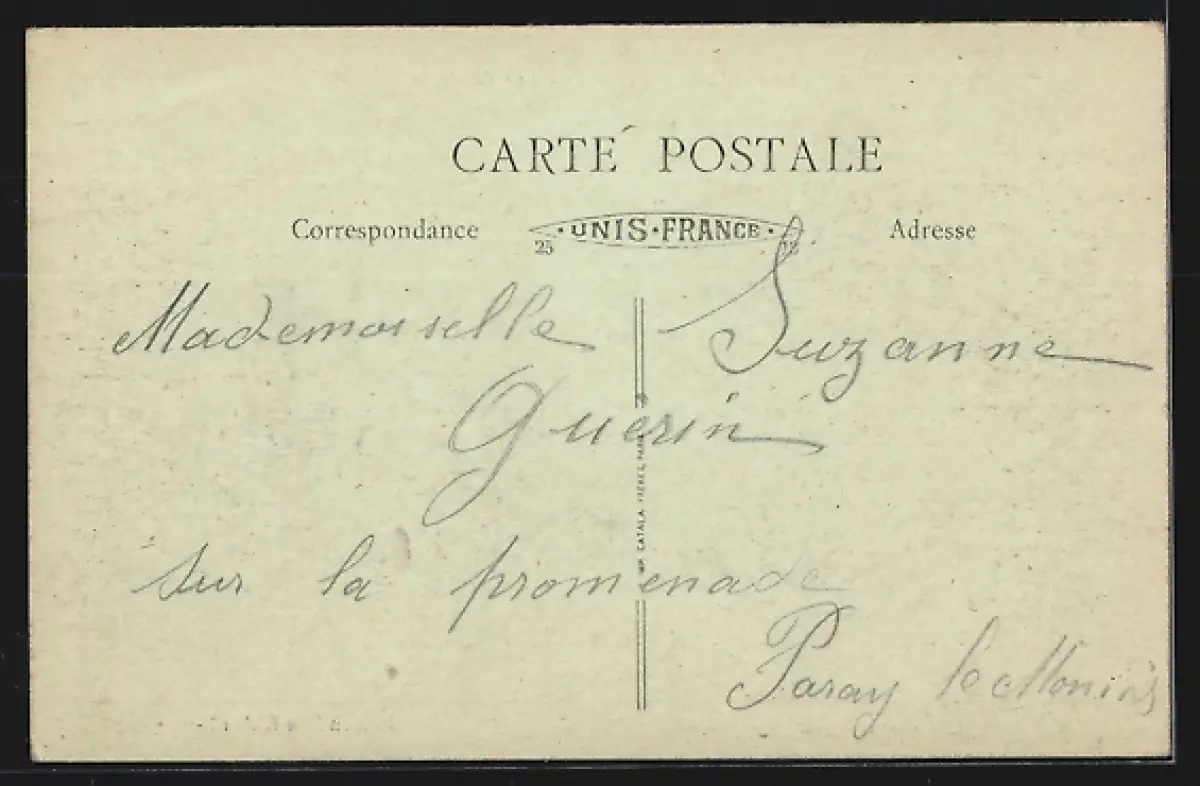 CARTE POSTALE
Correspondance
25 · UNIS · FRANCE ·
Adresse
Mademoiselle Suzanne
Guérin
IMP. CATALA FRÈRES, PARIS
sur la promenade
Paray le Monial